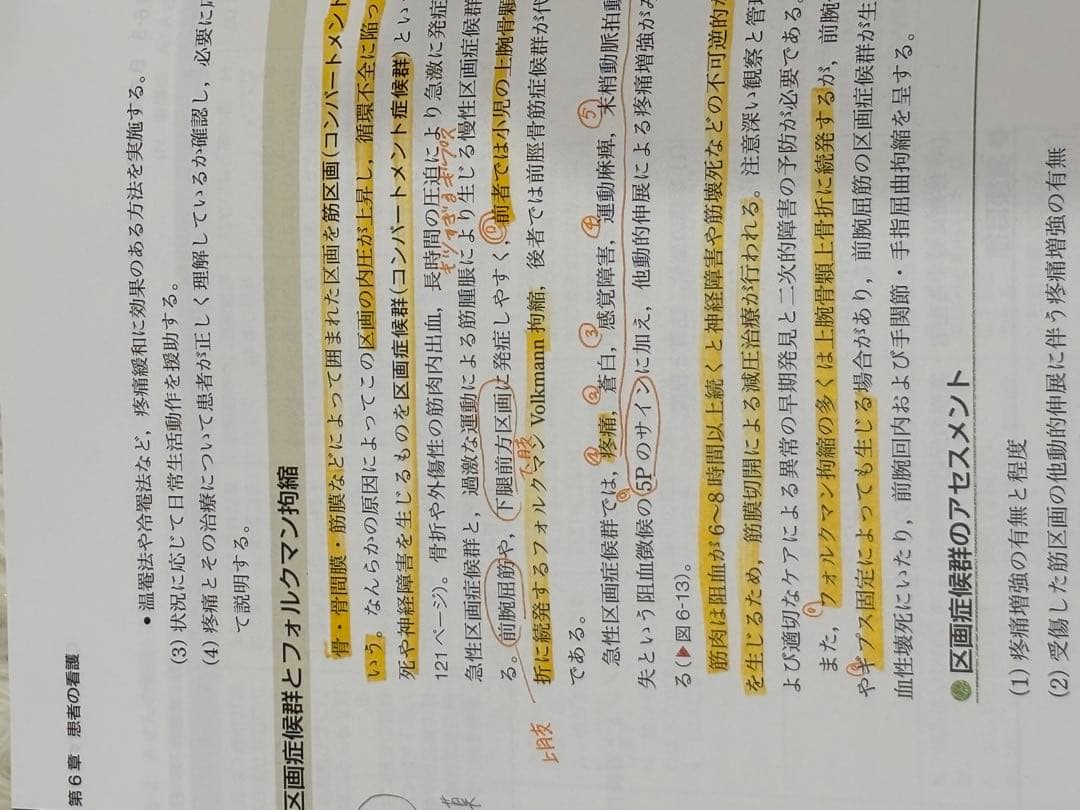 第6章 患者の看護
• 温罨法や冷罨法など，疼痛緩和に効果のある方法を実施する。
(3) 状況に応じて日常生活動作を援助する。
(4) 疼痛とその治療について患者が正しく理解しているか確認し，必要に
て説明する。
区画症候群とフォルクマン拘縮
骨・骨間膜・筋膜などによって囲まれた区画を筋区画(コンパートメント
いう。なんらかの原因によってこの区画の内圧が上昇し，循環不全に陥っ
死や神経障害を生じるものを区画症候群(コンパートメント症候群)とい
121ページ)。骨折や外傷性の筋肉内出血，長時間の圧迫により急激に発症
きつすぎるギプス
急性区画症候群と，過激な運動による筋腫脹により生じる慢性区画症候群
る。前腕屈筋や，下腿前方区画に発症しやすく，前者では小児の上腕骨顆
上肢
下肢
折に続発するフォルクマン Volkmann 拘縮，後者では前脛骨筋症候群が代
である。
急性区画症候群では，①疼痛，②蒼白，③感覚障害，④運動麻痺，⑤末梢動脈拍動
失という阻血徴候の5Pのサインに加え，他動的伸展による疼痛増強が
る(▶図6-13)。
筋肉は阻血が6～8時間以上続くと神経障害や筋壊死などの不可逆的
を生じるため，筋膜切開による減圧治療が行われる。注意深い観察と管
よび適切なケアによる異常の早期発見と二次的障害の予防が必要である。
また，フォルクマン拘縮の多くは上腕骨顆上骨折に続発するが，前腕
やギプス固定によっても生じる場合があり，前腕屈筋の区画症候群が生
血性壊死にいたり，前腕回内および手関節・手指屈曲拘縮を呈する。
区画症候群のアセスメント
(1) 疼痛増強の有無と程度
(2) 受傷した筋区画の他動的伸展に伴う疼痛増強の有無